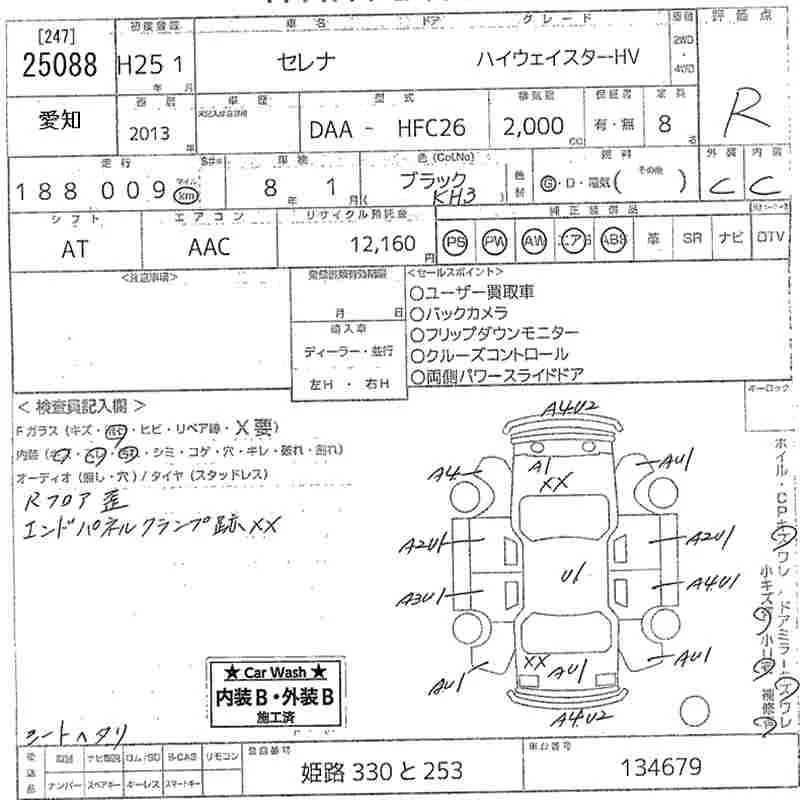 [247]
25088
初度登録
H25 1
年 月
車名 ドア グレード
セレナ ハイウェイスターHV
車種
2WD
・
4WD
評価点
R
愛知
西暦
2013
年
車歴
型式
DAA - HFC26
排気量
2,000
CC
保証書
有・無
定員
8
名
走行
188 009
マイル
km
車検
8 年 1 月
色 (Col.No)
ブラック
KH3
色替
燃料
G・D・電気( その他 )
外装 内装
C C
シフト
AT
エアコン
AAC
リサイクル預託金
12,160
円
純正装備品
PS PW AW エアB ABS 革 SR ナビ DTV
<注意事項>
月 日
輸入車
ディーラー・並行
左H ・ 右H
<セールスポイント>
○ユーザー買取車
○バックカメラ
○フリップダウンモニター
○クルーズコントロール
○両側パワースライドドア
キーロック
< 検査員記入欄 >
Fガラス (キズ・ ・ヒビ・リペア跡・X要)
・シミ・コゲ・穴・キレ・破れ・割れ)
オーディオ (無し・穴) / タイヤ (スタッドレス)
Rフロア歪
エンドパネルクランプ跡 XX
A4U2
A1
XX
A4
AU1
A2U1
A2U1
U1
A3U1
A4U1
XX
AU1
AU1
AU1
A4U2
ホイル・CPキズワレ / ドアミラーキズワレ
小キズ 小U 補修
★ Car Wash ★
内装B・外装B
施工済
シートヘタリ
後送品
取説 ナビ取説 ロム/SD B-CAS リモコン
ナンバー スペアキー キーレス スマートキー
登録番号
姫路 330 と 253
車台番号
134679